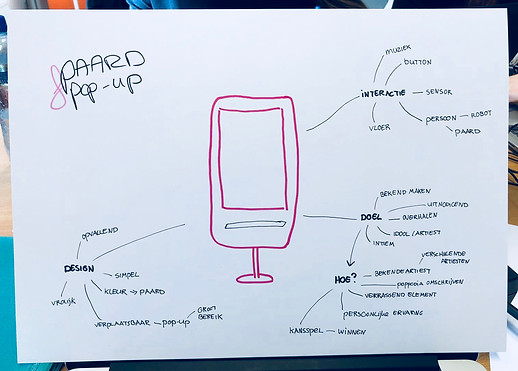 PAARD
& POP-UP
MUZIEK
BUTTON
INTERACTIE
SENSOR
PERSOON
ROBOT
PAARD
VLOER
BEKEND MAKEN
UITNODIGEND
DOEL
OVERHALEN
IDOOL/ARTIEST
INTIEM
HOE?
VERSCHILLENDE
ARTIESTEN
BEKENDE ARTIEST
POPPODIA OMSCHRIJVEN
VERRASSEND ELEMENT
PERSOONLIJKE ERVARING
KANSSPEL
WINNEN
OPVALLEND
DESIGN
SIMPEL
KLEUR → PAARD
VROLIJK
VERPLAATSBAAR
POP-UP
GROOT
BEREIK